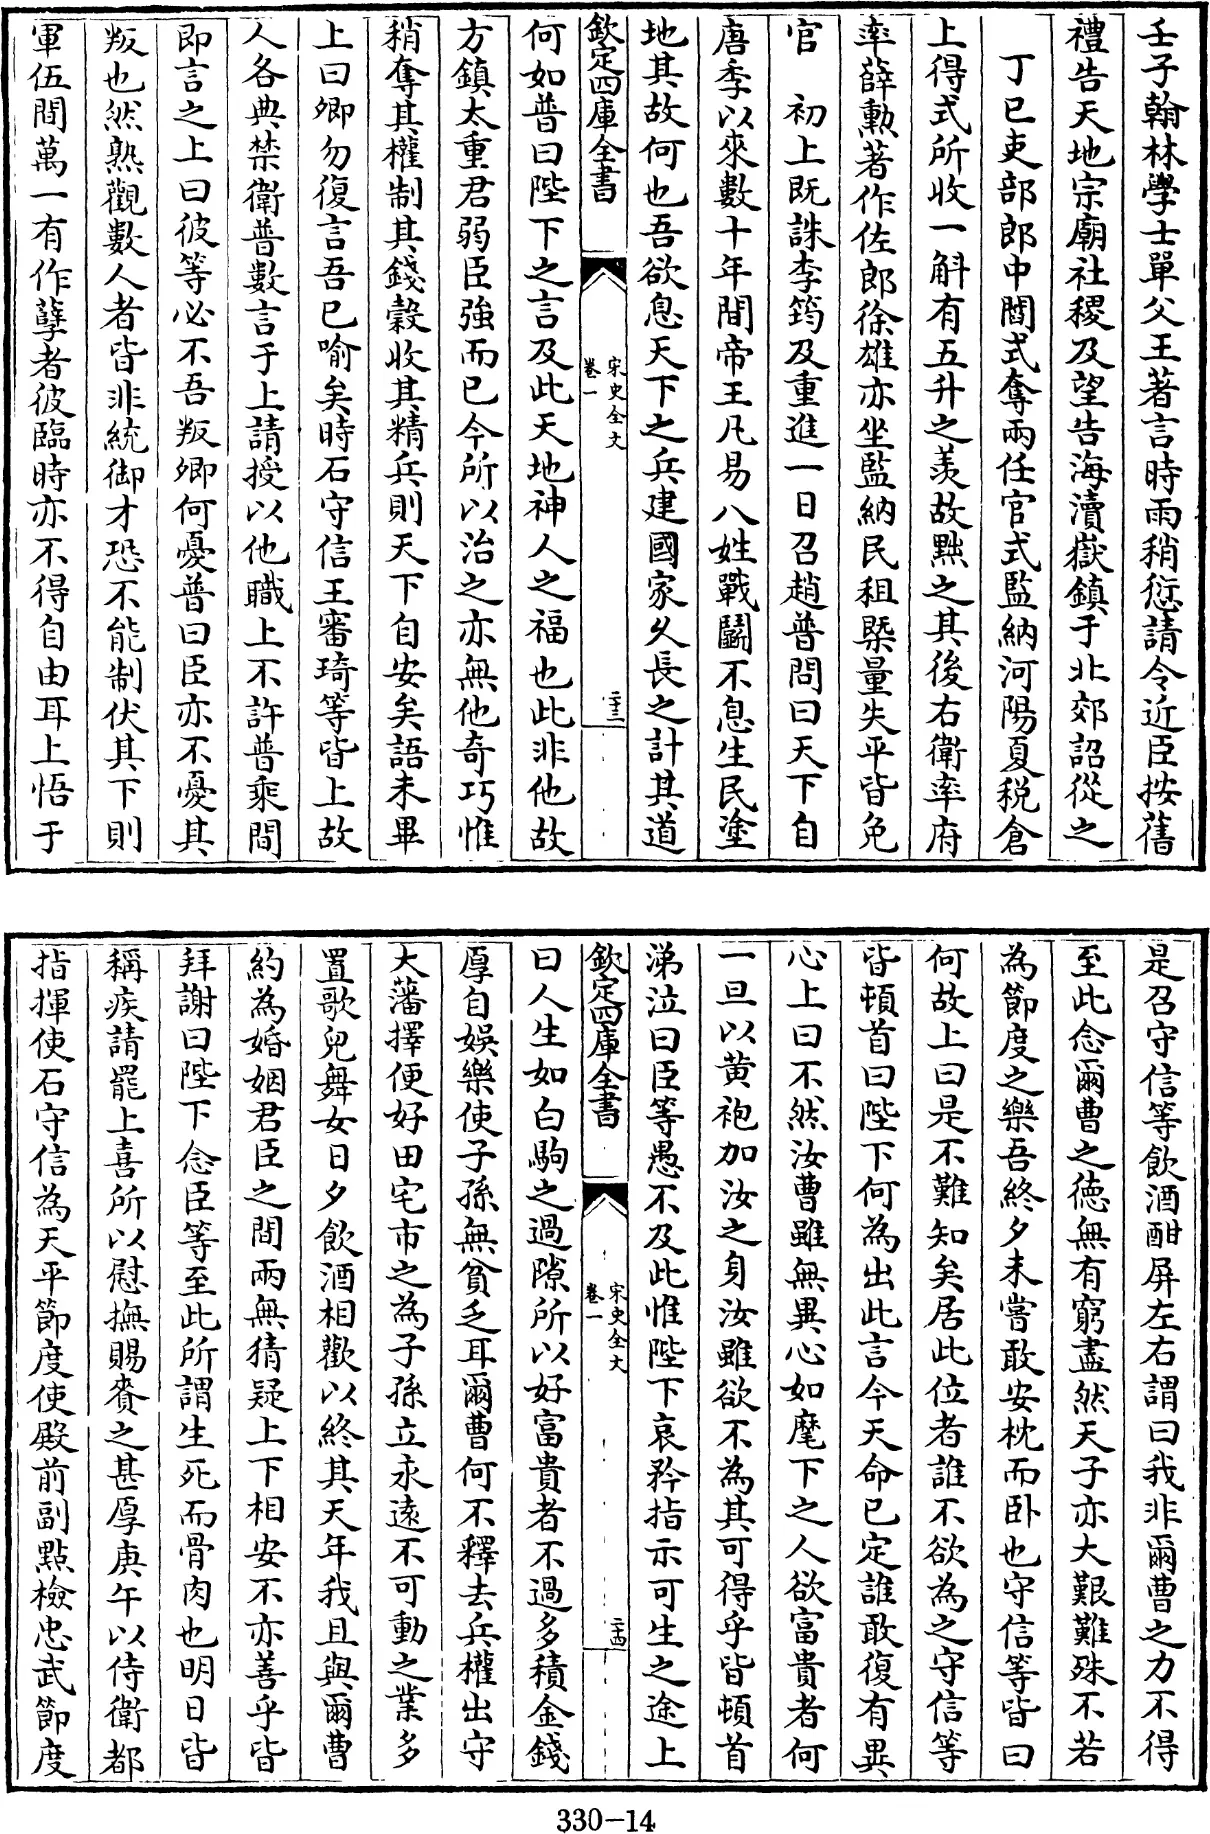 壬子翰林學士單父王著言時雨稍愆請令近臣按舊
禮告天地宗廟社稷及望告海瀆嶽鎮于北郊詔從之
丁巳吏部郎中閻式奪兩任官式監納河陽夏稅倉
上得式所收一斛有五升之羨故黜之其後右衛率府
率薛勲著作佐郎徐雄亦坐監納民租槩量失平皆免
官　初上既誅李筠及重進一日召趙普問曰天下自
唐季以來數十年間帝王凡易八姓戰鬭不息生民塗
地其故何也吾欲息天下之兵建國家乆長之計其道
欽定四庫全書
宋史全文
卷一
二十三
何如普曰陛下之言及此天地神人之福也此非他故
方鎮太重君弱臣強而已今所以治之亦無他奇巧惟
稍奪其權制其錢穀收其精兵則天下自安矣語未畢
上曰卿勿復言吾已喻矣時石守信王審琦等皆上故
人各典禁衛普數言于上請授以他職上不許普乘間
即言之上曰彼等必不吾叛卿何憂普曰臣亦不憂其
叛也然熟觀數人者皆非統御才恐不能制伏其下則
軍伍間萬一有作孽者彼臨時亦不得自由耳上悟于
是召守信等飲酒酣屏左右謂曰我非爾曹之力不得
至此念爾曹之德無有窮盡然天子亦大艱難殊不若
為節度之樂吾終夕未嘗敢安枕而卧也守信等皆曰
何故上曰是不難知矣居此位者誰不欲為之守信等
皆頓首曰陛下何為出此言今天命已定誰敢復有異
心上曰不然汝曹雖無異心如麾下之人欲富貴者何
一旦以黄袍加汝之身汝雖欲不為其可得乎皆頓首
涕泣曰臣等愚不及此惟陛下哀矜指示可生之途上
欽定四庫全書
宋史全文
卷一
二十四
曰人生如白駒之過隙所以好富貴者不過多積金錢
厚自娛樂使子孫無貧乏耳爾曹何不釋去兵權出守
大藩擇便好田宅市之為子孫立永遠不可動之業多
置歌兒舞女日夕飲酒相歡以終其天年我且與爾曹
約為婚姻君臣之間兩無猜疑上下相安不亦善乎皆
拜謝曰陛下念臣等至此所謂生死而骨肉也明日皆
稱疾請罷上喜所以慰撫賜賚之甚厚庚午以侍衛都
指揮使石守信為天平節度使殿前副點檢忠武節度
330-14